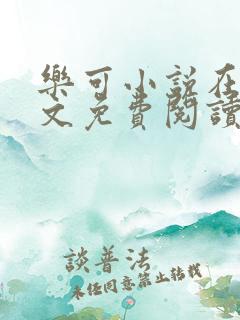 樂可小說在
文免費閱讀
談普法
未經同意禁止轉載